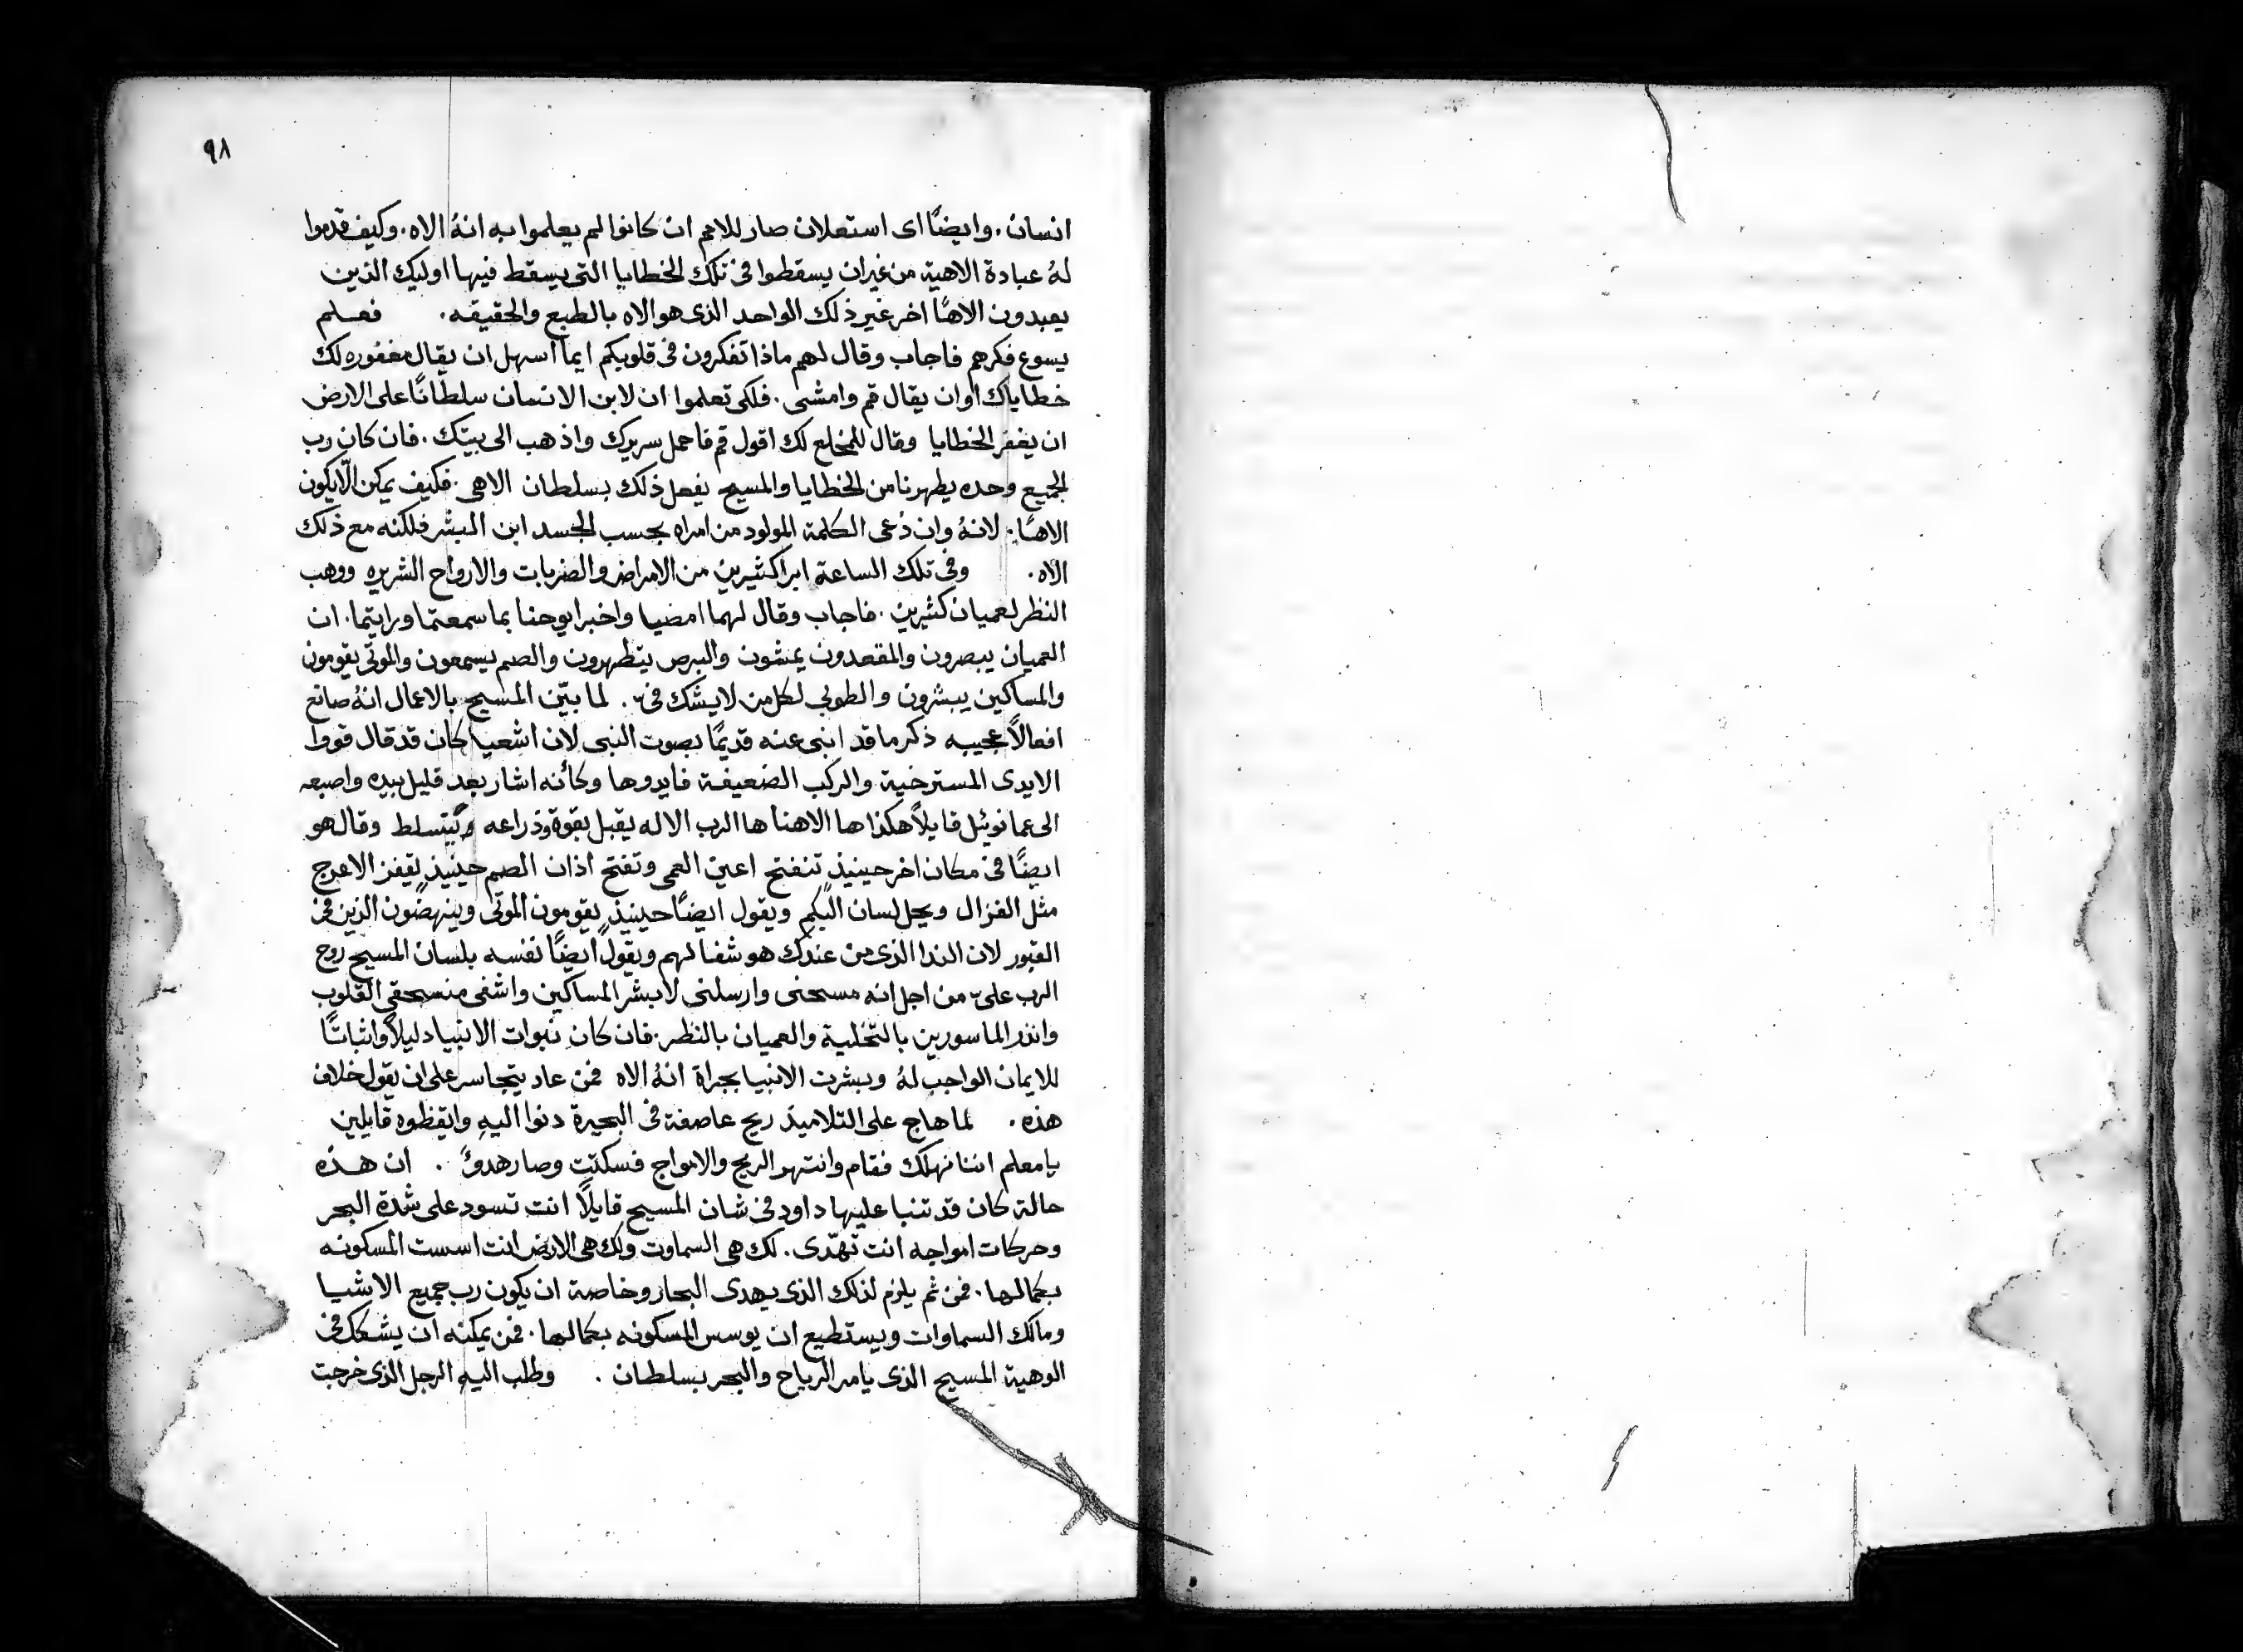 ٩٨
انسان. وايضًا اى استعلان صار للامم ان كانوا لم يعلموا به انهُ الاه. وكيف قدموا
لهُ عبادة الاهية من غير ان يسقطوا فى تلك الخطايا التى يسقط فيها اوليك الذين
يعبدون الاهًا اخر غير ذلك الواحد الذى هو الاه بالطبع والحقيقه. فعلم
يسوع فكرهم فاجاب وقال لهم ماذا تفكرون فى قلوبكم ايما اسهل ان يقال مغفوره لك
خطاياك او ان يقال قم وامشى. فلكى تعلموا ان لابن الانسان سلطانًا على الارض
ان يغفر الخطايا وقال للمخلع لك اقول قم فاحمل سريرك واذهب الى بيتك. فان كان رب
الجميع وحده يطهرنا من الخطايا والمسيح يفعل ذلك بسلطان الاهى. فكيف يمكن الّا يكون
الاهًا. لانهُ وان دُعى الكلمة المولود من امراه بحسب الجسد ابن البشر فلكنه مع ذلك
الاه. وفى تلك الساعة ابرا كثيرين من الامراض والضربات والارواح الشريره ووهب
النظر لعميان كثيرين. فاجاب وقال لهما امضيا واخبرا يوحنا بما سمعتما ورايتما. ان
العميان يبصرون والمقعدون يمشون والبرص يتطهرون والصم يسمعون والموتى يقومون
والمساكين يبشرون والطوبى لكل من لا يشك فىّ. لما بيّن المسيح بالاعمال انهُ صانع
افعالاً عجيبه ذكر ما قد انبى عنه قديمًا بصوت النبى لان اشعيا كان قد قال قووا
الايدى المسترخية والركب الضعيفة فايدوها وكأنه اشار بعد قليل بيده واصبعه
الى عمانويل قايلاً هكذا ها الاهنا ها الرب الاله يقبل بقوة وذراعه يتسلط وقال هو
ايضًا فى مكان اخر حينيذٍ تنفتح اعين العمى وتفتح اذان الصم حينيذٍ يقفز الاعرج
مثل الغزال ويحل لسان البكم ويقول ايضًا حينيذٍ يقومون الموتى وينهضون الذين فى
القبور لان الندا الذى من عندك هو شفا لهم ويقول ايضًا نفسه بلسان المسيح روح
الرب علىّ من اجل انه مسحنى وارسلنى لابشر المساكين واشفى منسحقى القلوب
وانذر الماسورين بالتخلية والعميان بالنظر. فان كان نبوات الانبيا دليلاً واثباتًا
للايمان الواجب لهُ وبشرت الانبيا بجراة انهُ الاه فمن عاد يتجاسر على ان يقول خلاف
هذه. لما هاج على التلاميذ ريح عاصفة فى البحيرة دنوا اليهِ وايقظوه قايلين
يا معلم اننا نهلك فقام وانتهر الريح والامواج فسكتت وصار هدوٌ. ان هذه
حالة كان قد تنبا عليها داود فى شان المسيح قايلاً انت تسود على شدة البحر
وحركات امواجه انت تهدّى. لك هى السماوت ولك هى الارض انت اسست المسكونه
بكمالها. فمن ثم يلزم لذلك الذى يهدى البحار وخاصة ان يكون رب جميع الاشيا
ومالك السماوات ويستطيع ان يوسس المسكونه بكمالها. فمن يمكنه ان يشكك فى
الوهية المسيح الذى يامر الرياح والبحر بسلطان. وطلب اليهِ الرجل الذى خرجت